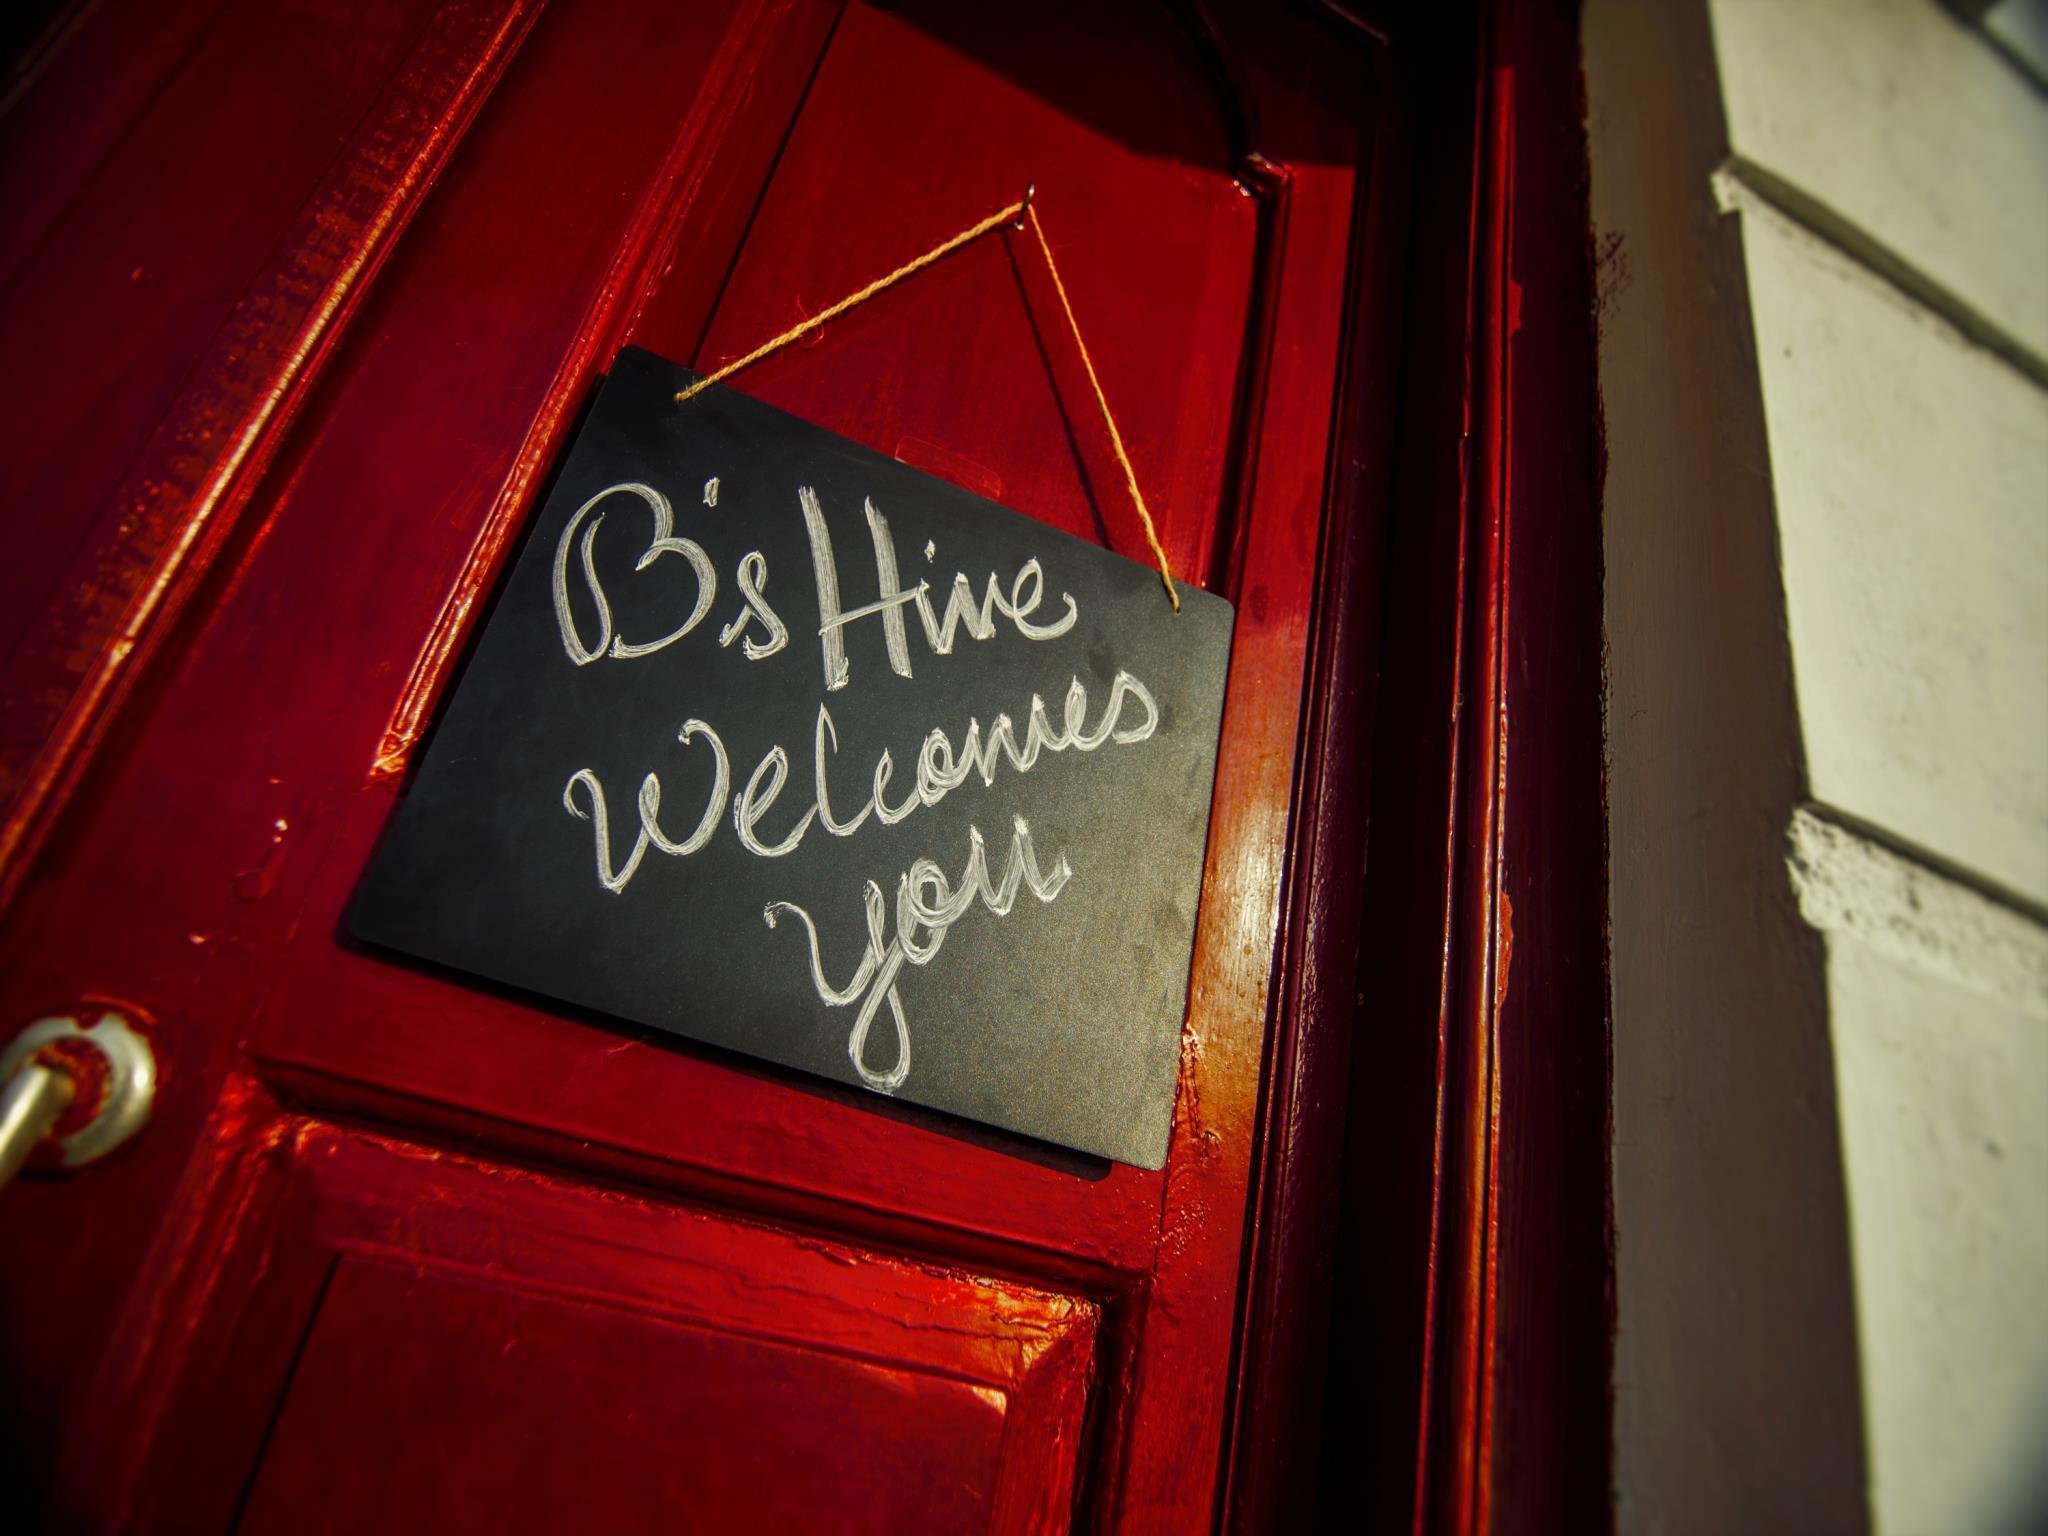 B's Hive
Welcomes
you